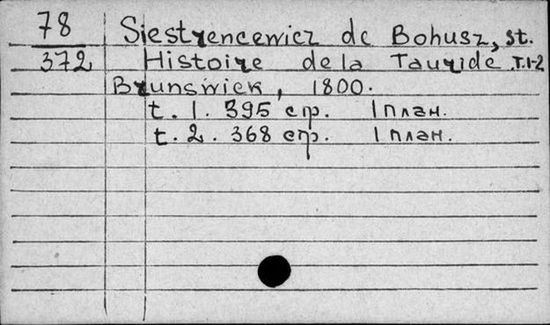 78 Siestrencewicz de Bohusz, st.
372 Histoire de la Tauride T.1-2
Brunswick, 1800.
t. 1. 395 стр. 1 план.
t. 2. 368 стр. 1 план.